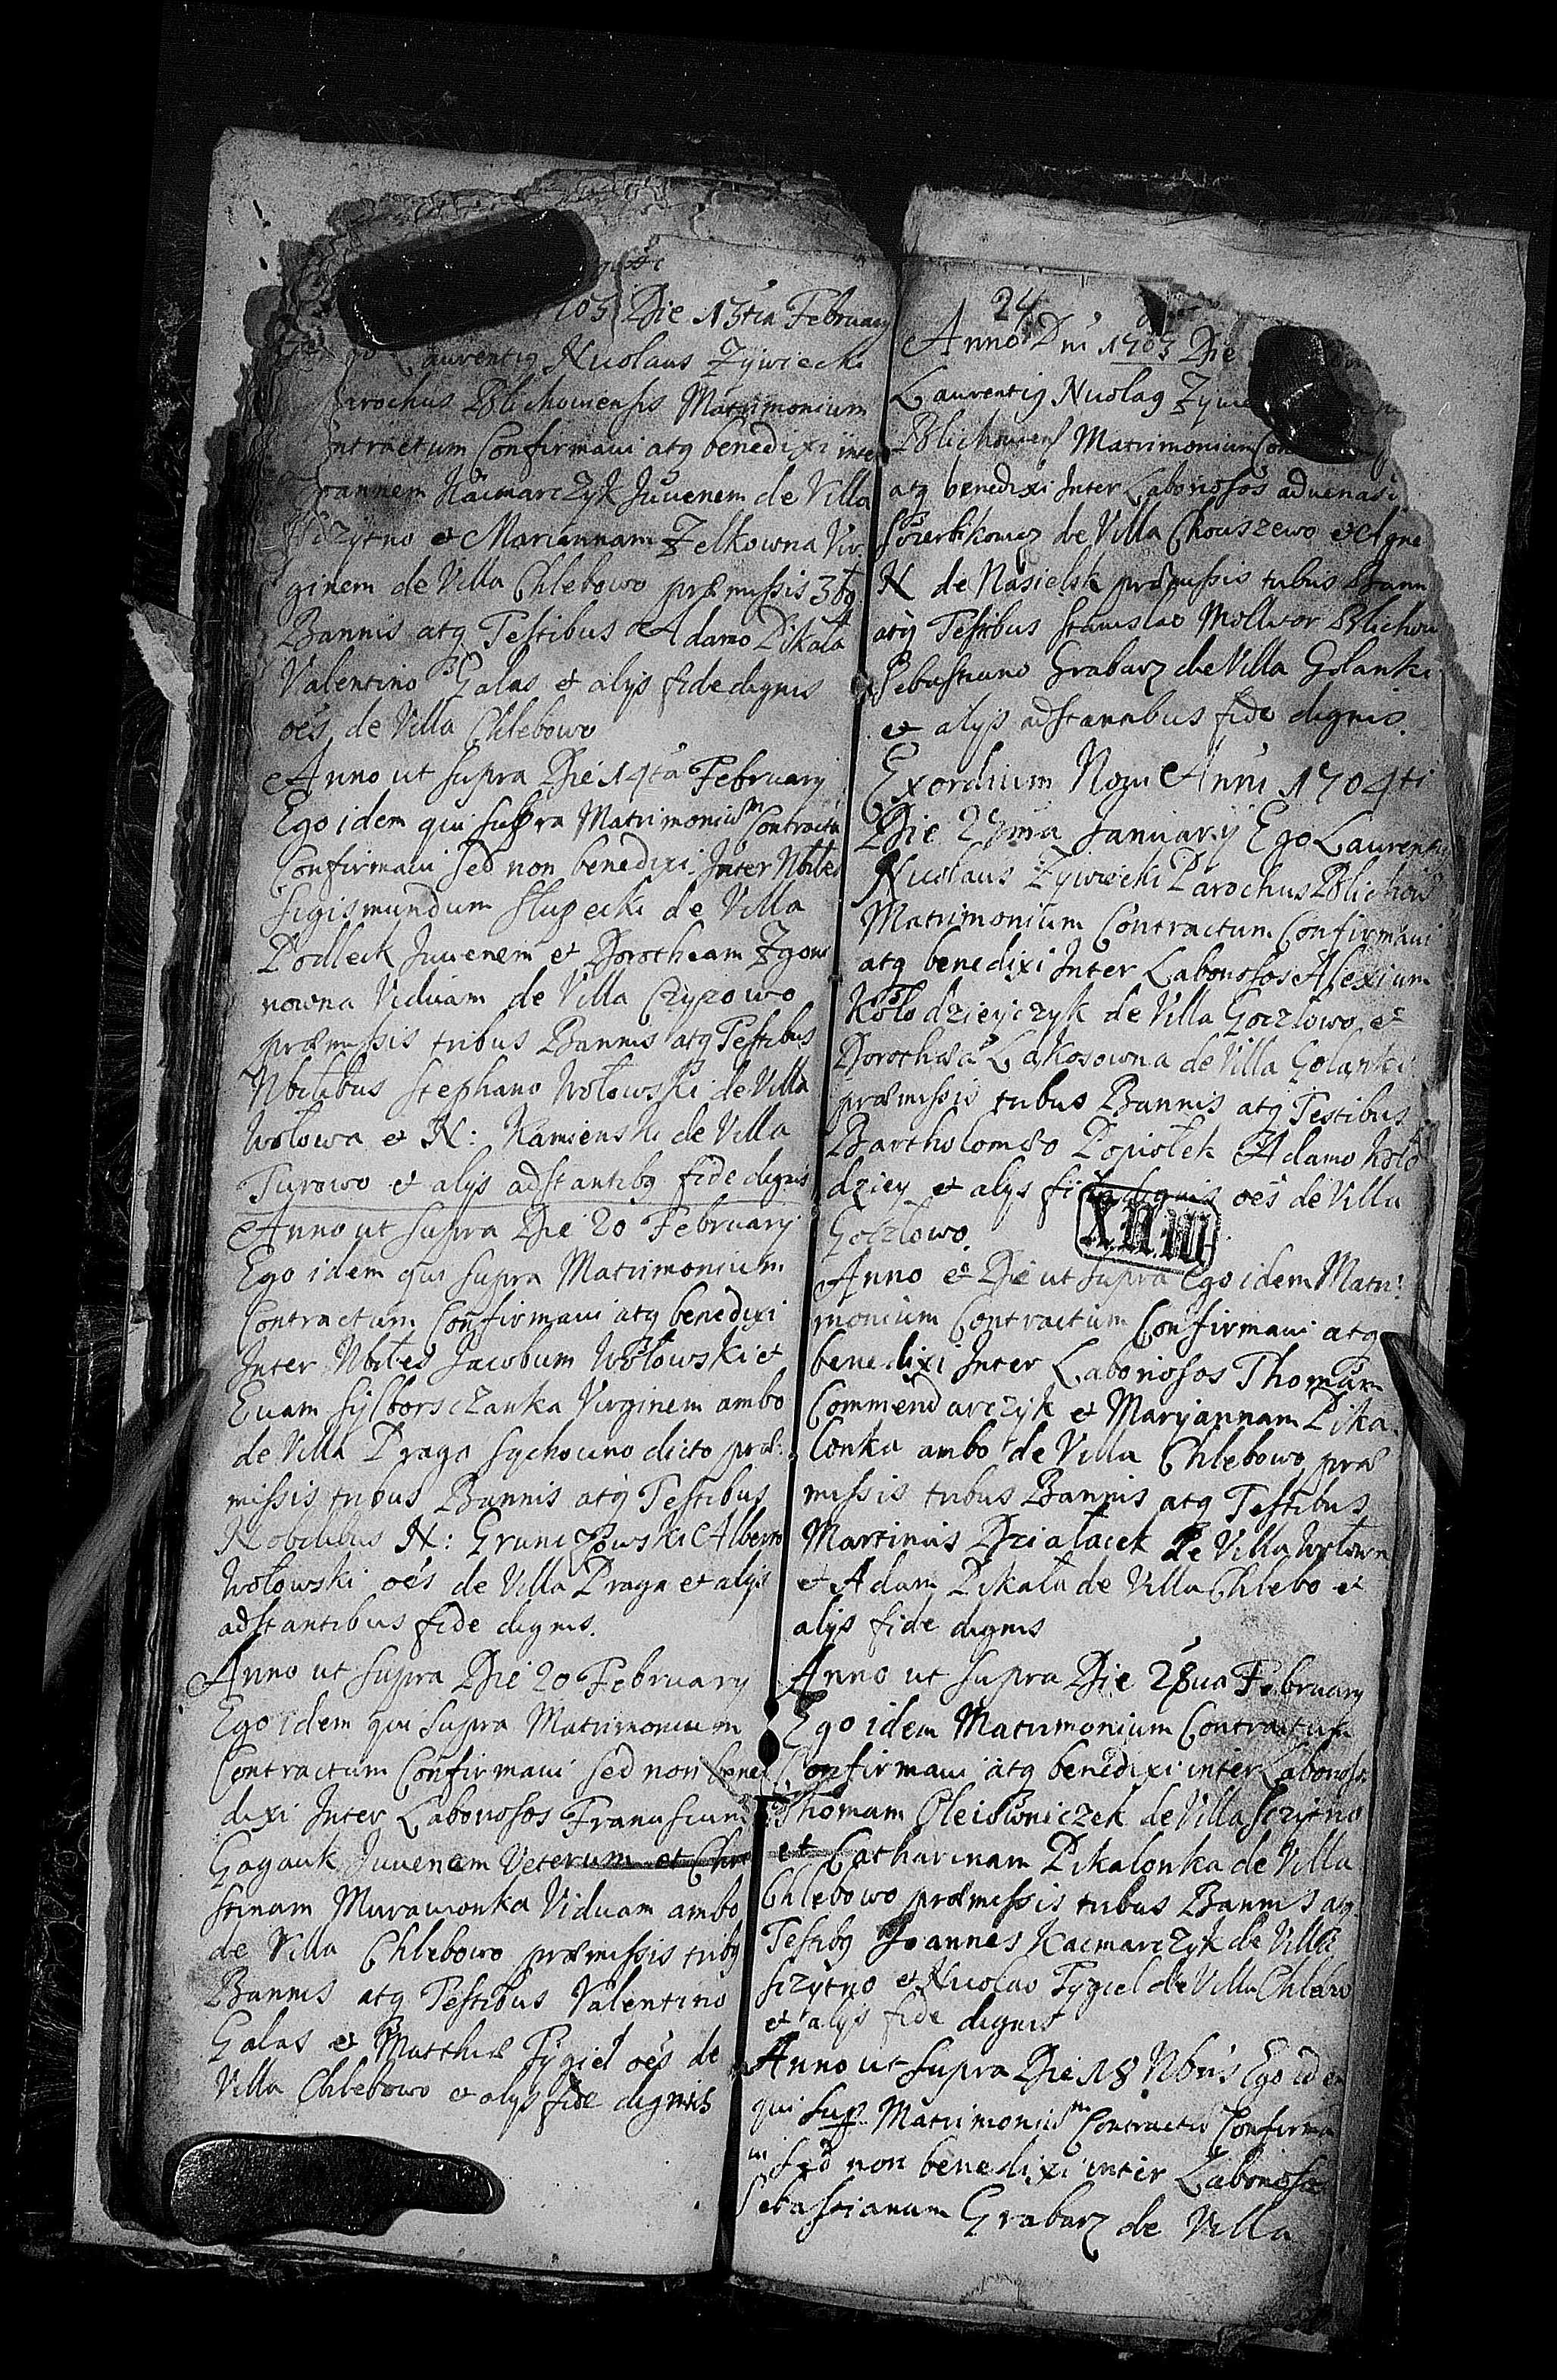 103 Die 13tia February
Laurentig Nicolaus Zywiecki
Parochus Blichoviensis Matrimonium
Contractum Confirmaui atq benedixi inter
Joannem Kacmarczyk Juuenem de Villa
Sczytno et Mariannam Zelkowna Vir
ginem de Villa Chlebowo præmissis 3bq
Bannis atq Testibus Adamo Pikała
Valentino Galas et alijs fide dignis
oẽs de Villa Chlebowo
Anno ut supra Die 14ta February
Ego idem qui supra Matrimoniũm Contractũ
Confirmaui sed non benedixi Inter Nbiles
Sigismundum Słupecki de Villa
Podleck Juuenem et Dorotheam Zgow
nowna Viduam de Villa Czyzowo
præmissis tribus Bannis atq Testibus
Nbilibus Stephano Wołowski de Villa
Wołowa et N: Kamienski de Villa
Turowo et alijs adstantibq fide dignis
Anno ut supra Die 20 February
Ego idem qui supra Matrimonium
Contractum Confirmaui atq benedixi
Inter Nbiles Jacobum Wołowski et
Euam Virginem ambo
de Villa Praga Sychowno dicto præ:
missis tribus Bannis atq Testibus
Nobilibus N: Alberto
Wołowski oẽs de Villa Praga et alijs
adstantibus fide dignis.
Anno ut supra Die 20 February
Ego idem qui supra Matrimonium
Contractum Confirmaui sed non bene
dixi Inter Laboriosos Franciscum
Gagauk Juuenem Veterum et Chri
stinam Murawonka Viduam ambo
de Villa Chlebowo præmissis tribq
Bannis atq Testibus Valentino
Galas et Mathia Tygiel oẽs de
Villa Chlebowo et alijs fide dignis
24
Anno Dni 1703 Die
Laurentig Nicolaq Zywie
Blichouiens Matrimonium Con
atq benedixi Inter Laboriosos aduenas
de Villa Chouszewo et Agne
N de Nasielsk præmissis tribus Bann
atq Testibus Stanislao Molitor Blichow
Sebastiano Grabarz de Villa Golanki
et alijs adstantibus fide dignis.
Exordium Noui Anni 1704ti
Die January Ego Laurentiu
Nicolaus Zywiecki Parochus Blichow
Matrimonium Contractum Confirmaui
atq benedixi Inter Laboriosos Alexium
Kołodzieyczyk de Villa Goczlowo et
Dorotheã Lakosowna de Villa Golanki
præmissis tribus Bannis atq Testibus
Bartholomæo Popiołek Adamo Koło
dziey et alijs fide dignis oẽs de Villa
Goczlowo.
XII.III
Anno et Die ut supra Ego idem Matri:
monium Contractum Confirmaui atq
benedixi Inter Laboriosos Thomam
Commendarczyk et Maryannam Pika
lonka ambo de Villa Chlebowo præ
missis tribus Bannis atq Testibus
Martinus Działacek de Villa Wołowa
et Adam Pikała de Villa Chlebo et
alijs fide dignis
Anno ut supra Die February
Ego idem Matrimonium Contractum
Confirmaui atq benedixi inter Laborioss
Thomam Oleiowniczek de Villa Sczytno
et Catharinam Pikalonka de Villa
Chlebowo præmissis tribus Bannis atq
Testibq Joannes Kacmarczyk de Villa
Sczytno et Nicolao Tygiel de Villa Chlebo
et alijs fide dignis
Anno ut supra Die 18 Nbris Ego idem
qui sup Matrimoniũm Contractũ Confirma
ui sed non benedixi inter Laboriosos
Sebastianum Grabarz de Villa